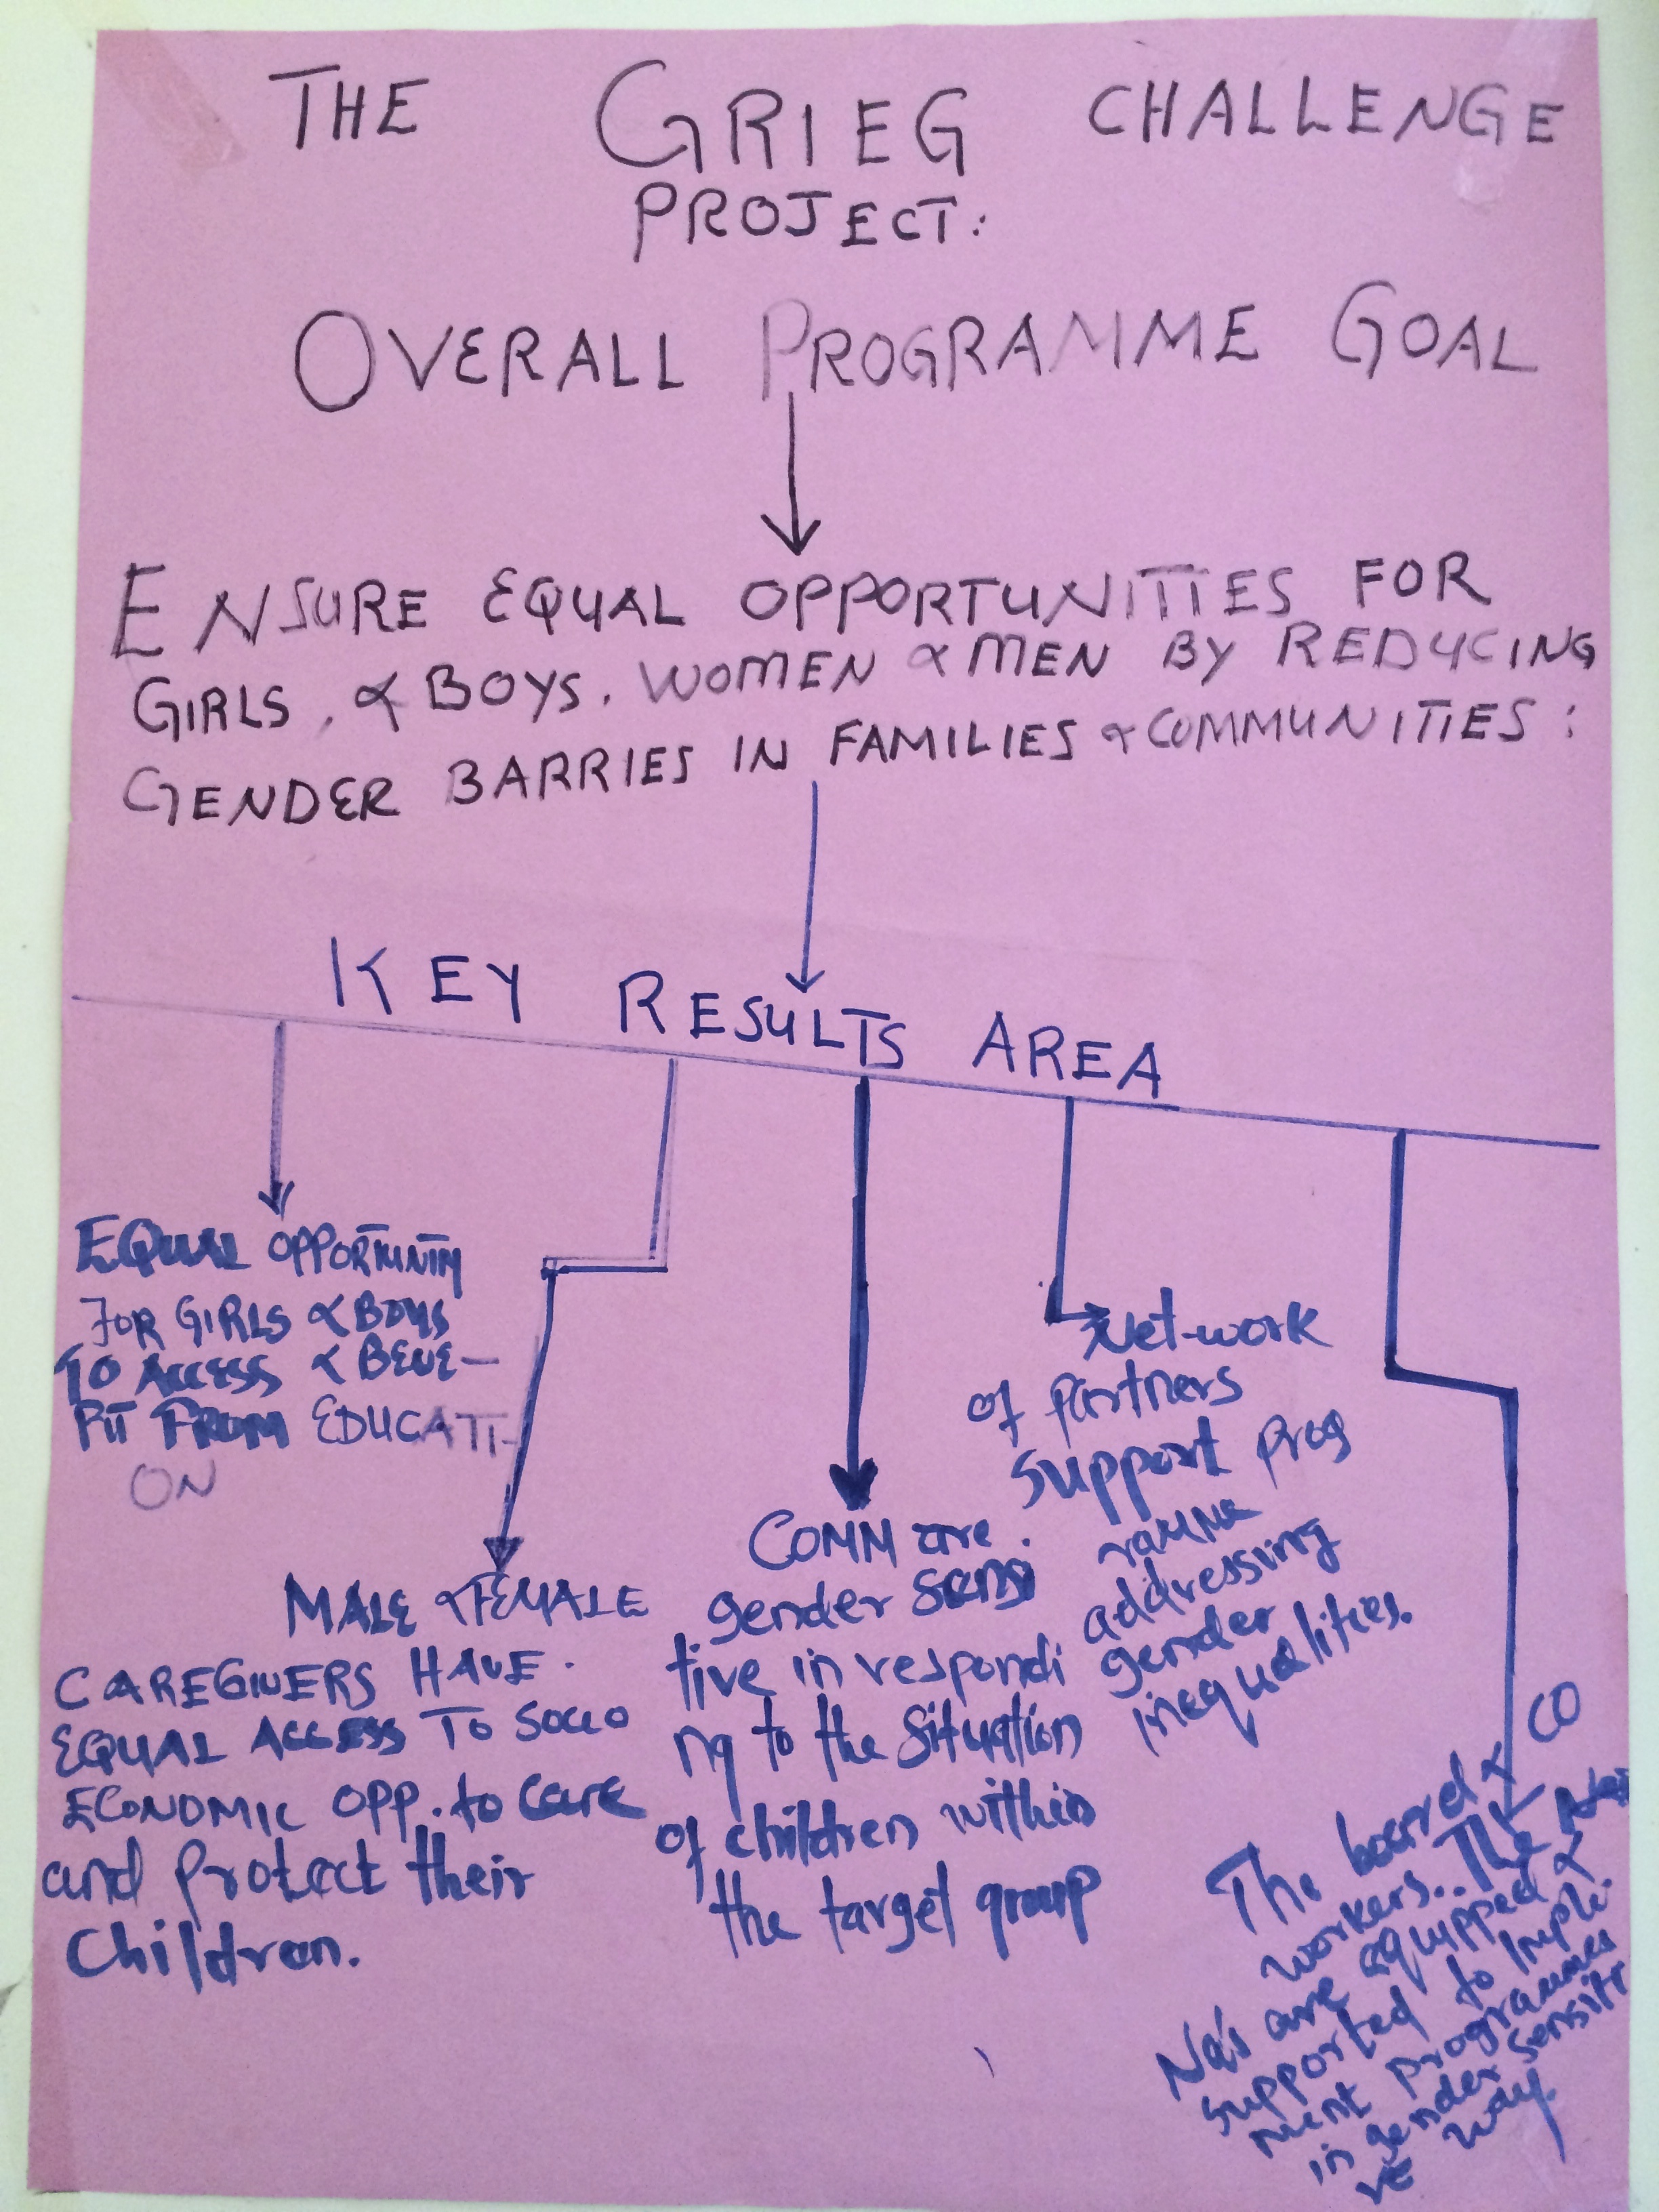 THE GRIEG CHALLENGE
PROJECT:
OVERALL PROGRAMME GOAL
ENSURE EQUAL OPPORTUNITIES FOR
GIRLS, & BOYS, WOMEN & MEN BY REDUCING
GENDER BARRIES IN FAMILIES & COMMUNITIES:
KEY RESULTS AREA
EQUAL OPPORTUNITY
FOR GIRLS & BOYS
TO ACCESS & BENE-
FIT FROM EDUCATI-
ON
MALE & FEMALE
CAREGIVERS HAVE
EQUAL ACCESS TO SOCIO
ECONOMIC OPP. to care
and protect their
Children.
COMM are
gender sensi
tive in respondi
ng to the situation
of children within
the target group
Net-work
of partners
support prog
ramme
addressing
gender
inequalities.
The board & CO
workers.. The
Na's are equipped &
supported to imple
ment programmes
in gender sensiti
ve way.